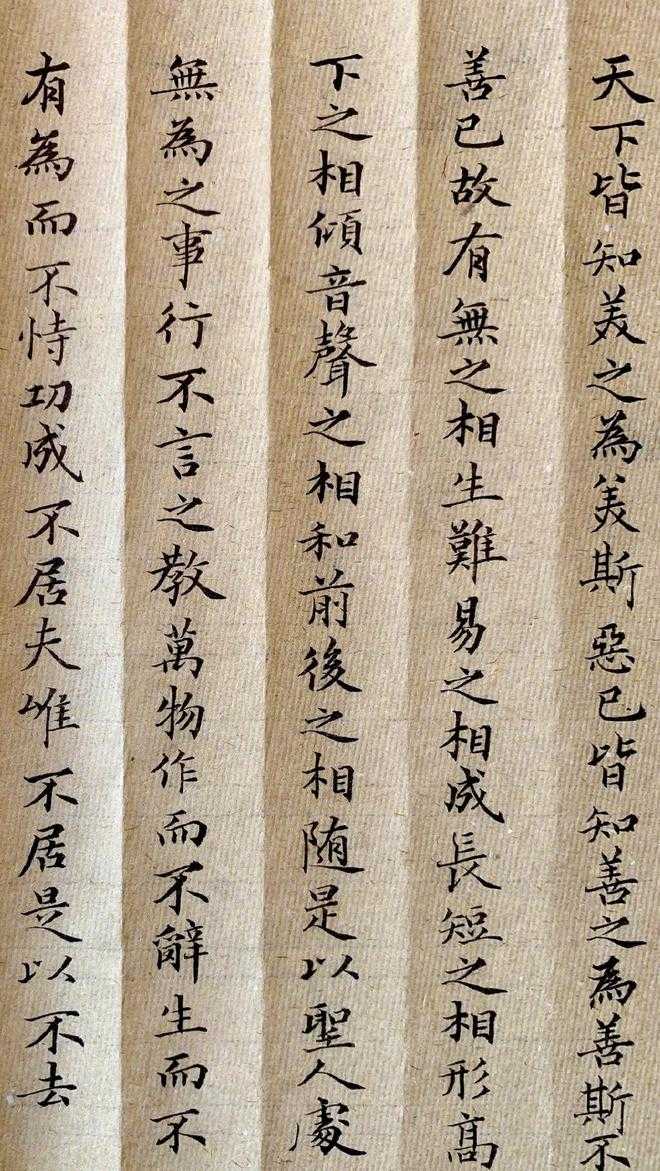 天下皆知美之為美斯惡已皆知善之為善斯不
善已故有無之相生難易之相成長短之相形高
下之相傾音聲之相和前後之相随是以聖人處
無為之事行不言之教萬物作而不辭生而不
有為而不恃功成不居夫唯不居是以不去